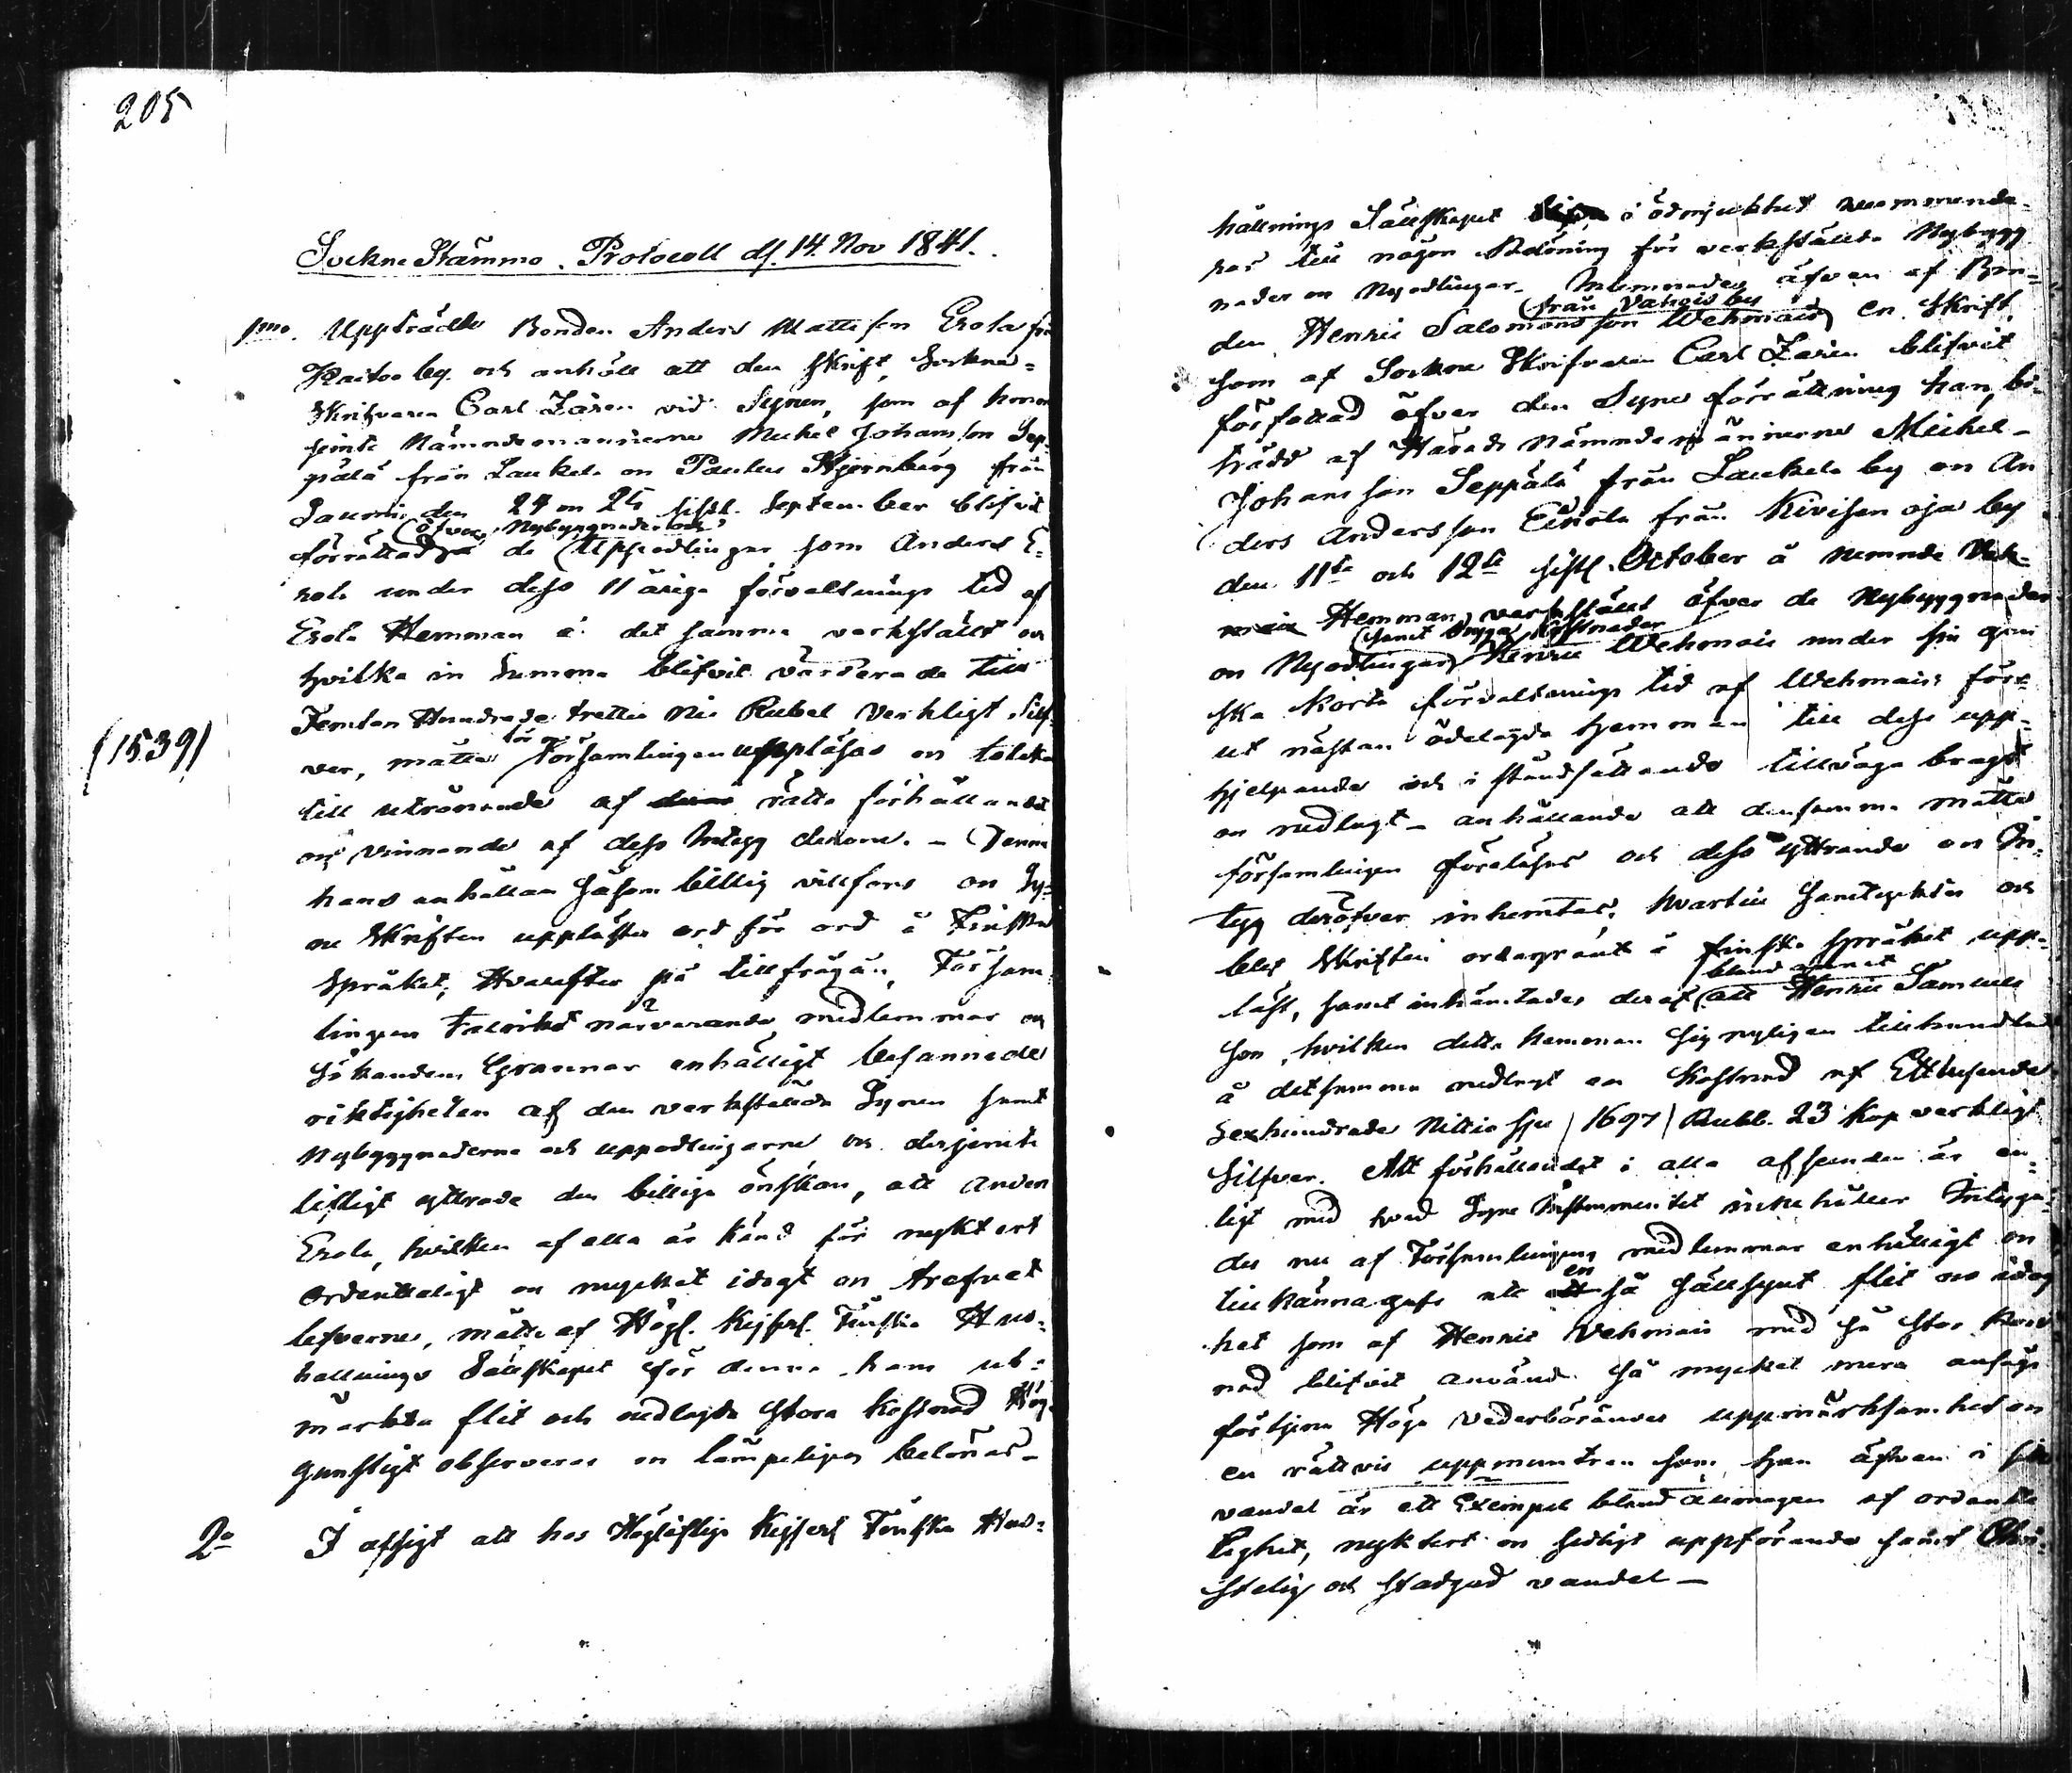 205
Sockne Stämmo Protocoll d. 14. Nov 1841.
1mo. Uppträdde Bonden Anders Mattsson Erola från
Raitoo by och anhöll att den skrift, Sockne=
Skrifvaren Carl Zären vid Synen, som af honom
jemte Nämndemännerne Mickel Johansson Sep=
pälä från Laukela on Paulus Björnberg från
Sauvoi den 24 on 25 sistl. September blifvit
(öfver Nybyggnader och
förrättad de Uppodlingar som Anders E=
rola under dess 11 årige förvaltnings tid af
Erola Hemman å det samma verkställt on
hvilka in Summa blifvit värderade till
(1539)
Femton Hundrade trettio Nio Rubel Verkligt Silf=
ver, måtte för Församlingen uppläsas on tolkas
till utrönande af rätta förhållandet
on vinnande af dess Intyg derom. – Denne
hans anhållan såsom billig villfors on Sy=
ne Skriften upplästes ord för ord å Finska
Språket, Hvarefter på tillfrågan, Försam=
lingens talrikt närvarande medlemmar on
Sökandens Grannar enhälligt besannade
riktigheten af den verkställda Synen samt
Nybyggnaderne och uppodlingarne on derjemte
lifligt yttrade den billiga önskan, att Anders
Erola, hvilken af alla är känd för nyktert
ordentligt on mycket idogt on strefsamt
lefverne, måtte af Högl. Kejserl. Finska Hus=
hållnings Sällskapet för denne hans ut=
märkta flit och nedlagda stora kostnad Hög=
gunstigt observeras on lämpeligen belönas –
2o I afsigt att hos Höglöflige Kejserl Finska Hus=
hållnings Sällskapet i ödmjukhet recommende=
ras till någon Belöning för verkställde Nybygg
nader on Nyodlingar. Inlemnades äfven af Bon=
(från Vahois by
den Henric Salomonsson Wehmais) en Skrift,
som af Sockne Skrifvaren Carl Zären blifvit
författad öfver den Syne förrättning han, bi=
trädd af Härads Nämndemännerne Mickel
Johansson Seppälä från Laukela by on An
ders Andersson Eskola från Kivisenoja by
den 11te och 12te sistl. October å nemnde Veh=
mais Hemman, verkställt öfver de Nybyggnader
(samt kostnader
on Nyodlingar, Henric Wehmais under sin gan
ska korta förvaltnings tid af Wehmais före
ut nästan ödelagda hemman till dess upp=
hjelpande och i ståndsättande tillväga bragt
on nedlagt – anhållande att densamma måtte
församlingen föreläsas och dess yttrande on In=
tyg deröfver inhemtas, hvartill samtycktes och
blef Skriften ordagrant å finska språket upp=
(bland annat
läst, samt inhämtades deraf, att Henric Samuels
son, hvilken detta hemman sig nyligen tillhandlat
å detsamma nedlagt en kostnad af Etttusende
Sexhundrade Nittio sju (1697) Rubl. 23 Kop verkligt
Silfver. Att förhållandet i alla afseenden är en=
ligt med hvad Syne Instrumentet innehåller Intyga=
des nu af Församlingens medlemmar enhälligt on
tillkännagafs att en så sällsynt flit on idog
het som af Henric Vehmais med så stor kost
nad blifvit använd så mycket mera ansågs
förtjena Höga Vederbörandes uppmärksamhet on
en rättvis uppmuntran som han äfven i sin
vandel är ett Exempel bland allmogen af ordent=
lighet, nyktert on sedligt uppförande samt Chri=
stelig och stadgad vandel –